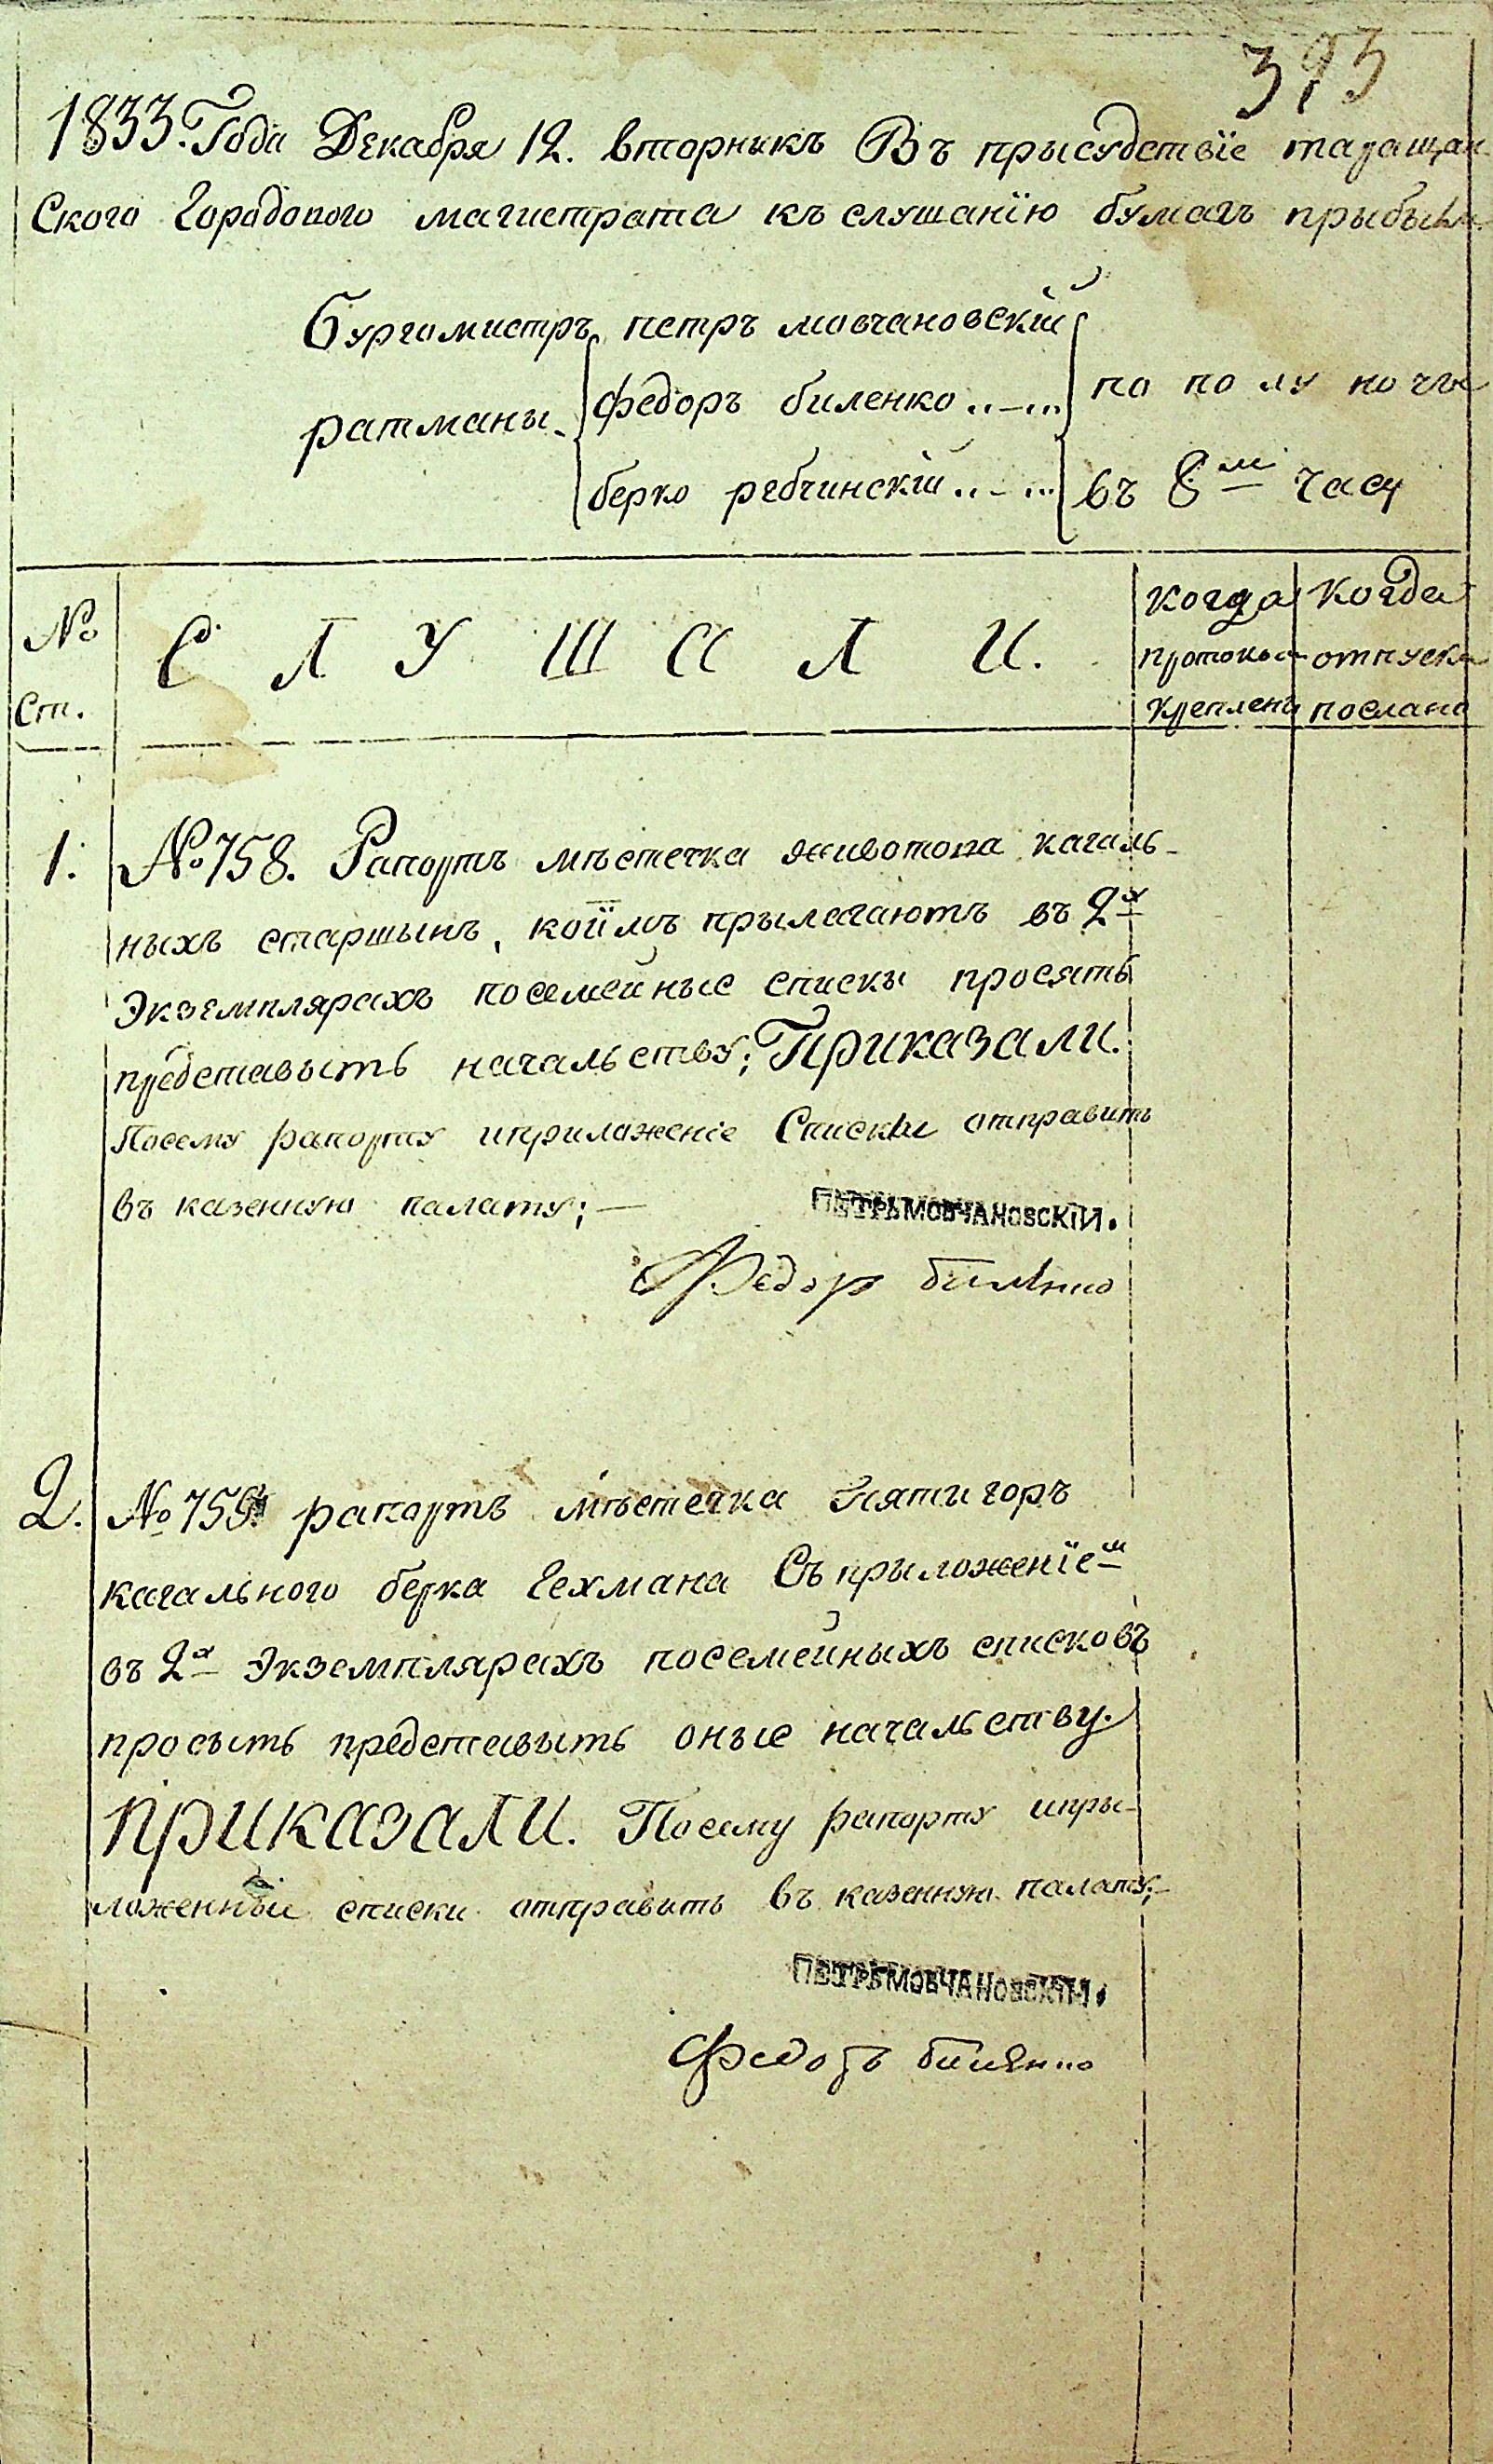 393
1833. Года Декабря 12. вторникъ Въ прысудствїе таращан
Ского Городового магистрата къ слушанїю бумагъ прыбыли
бургомистръ петръ мовчановскій
ратманы. федоръ биленко по полу ночѣ
берко ребчинскій въ 8м часу
№ С Л У Ш А Л И. когда когда
протоколъ отпуска
Ст. крепленъ послано
1. №758. Рапортъ мѣстечка животова кагаль-
ныхъ старшынъ, коїмъ прылагаютъ въ 2х
Экземплярахъ посемейные списки просять
представыть начальству; Приказали.
Посему рапорту иприложеніе Списки отправить
въ казенную палату; —
ПЕТРЬ МОВЧАНОВСКІЙ.
Федор биленко
2. №759. рапортъ мѣстечка Пятигоръ
кагального берка Гехмана Съ прыложенїем
въ 2х Экземплярахъ посемейныхъ списковъ
просыть представыть оные начальству.
ПРИКАЗАЛИ. Посему рапорту ипры-
ложенныи списки отправыть въ казенную палату;-
ПЕТРЬ МОВЧАНОВСКІЙ.
Федоръ биленко